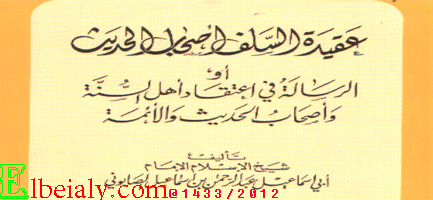 عقيدة السلف أصحاب الحديث
أو
الرسالة في اعتقاد أهل السنة
وأصحاب الحديث والأئمة
تأليف
شيخ الإسلام الإمام
أبي إسماعيل عبد الرحمن بن إسماعيل الصابوني
Elbeialy.com@1433/2012